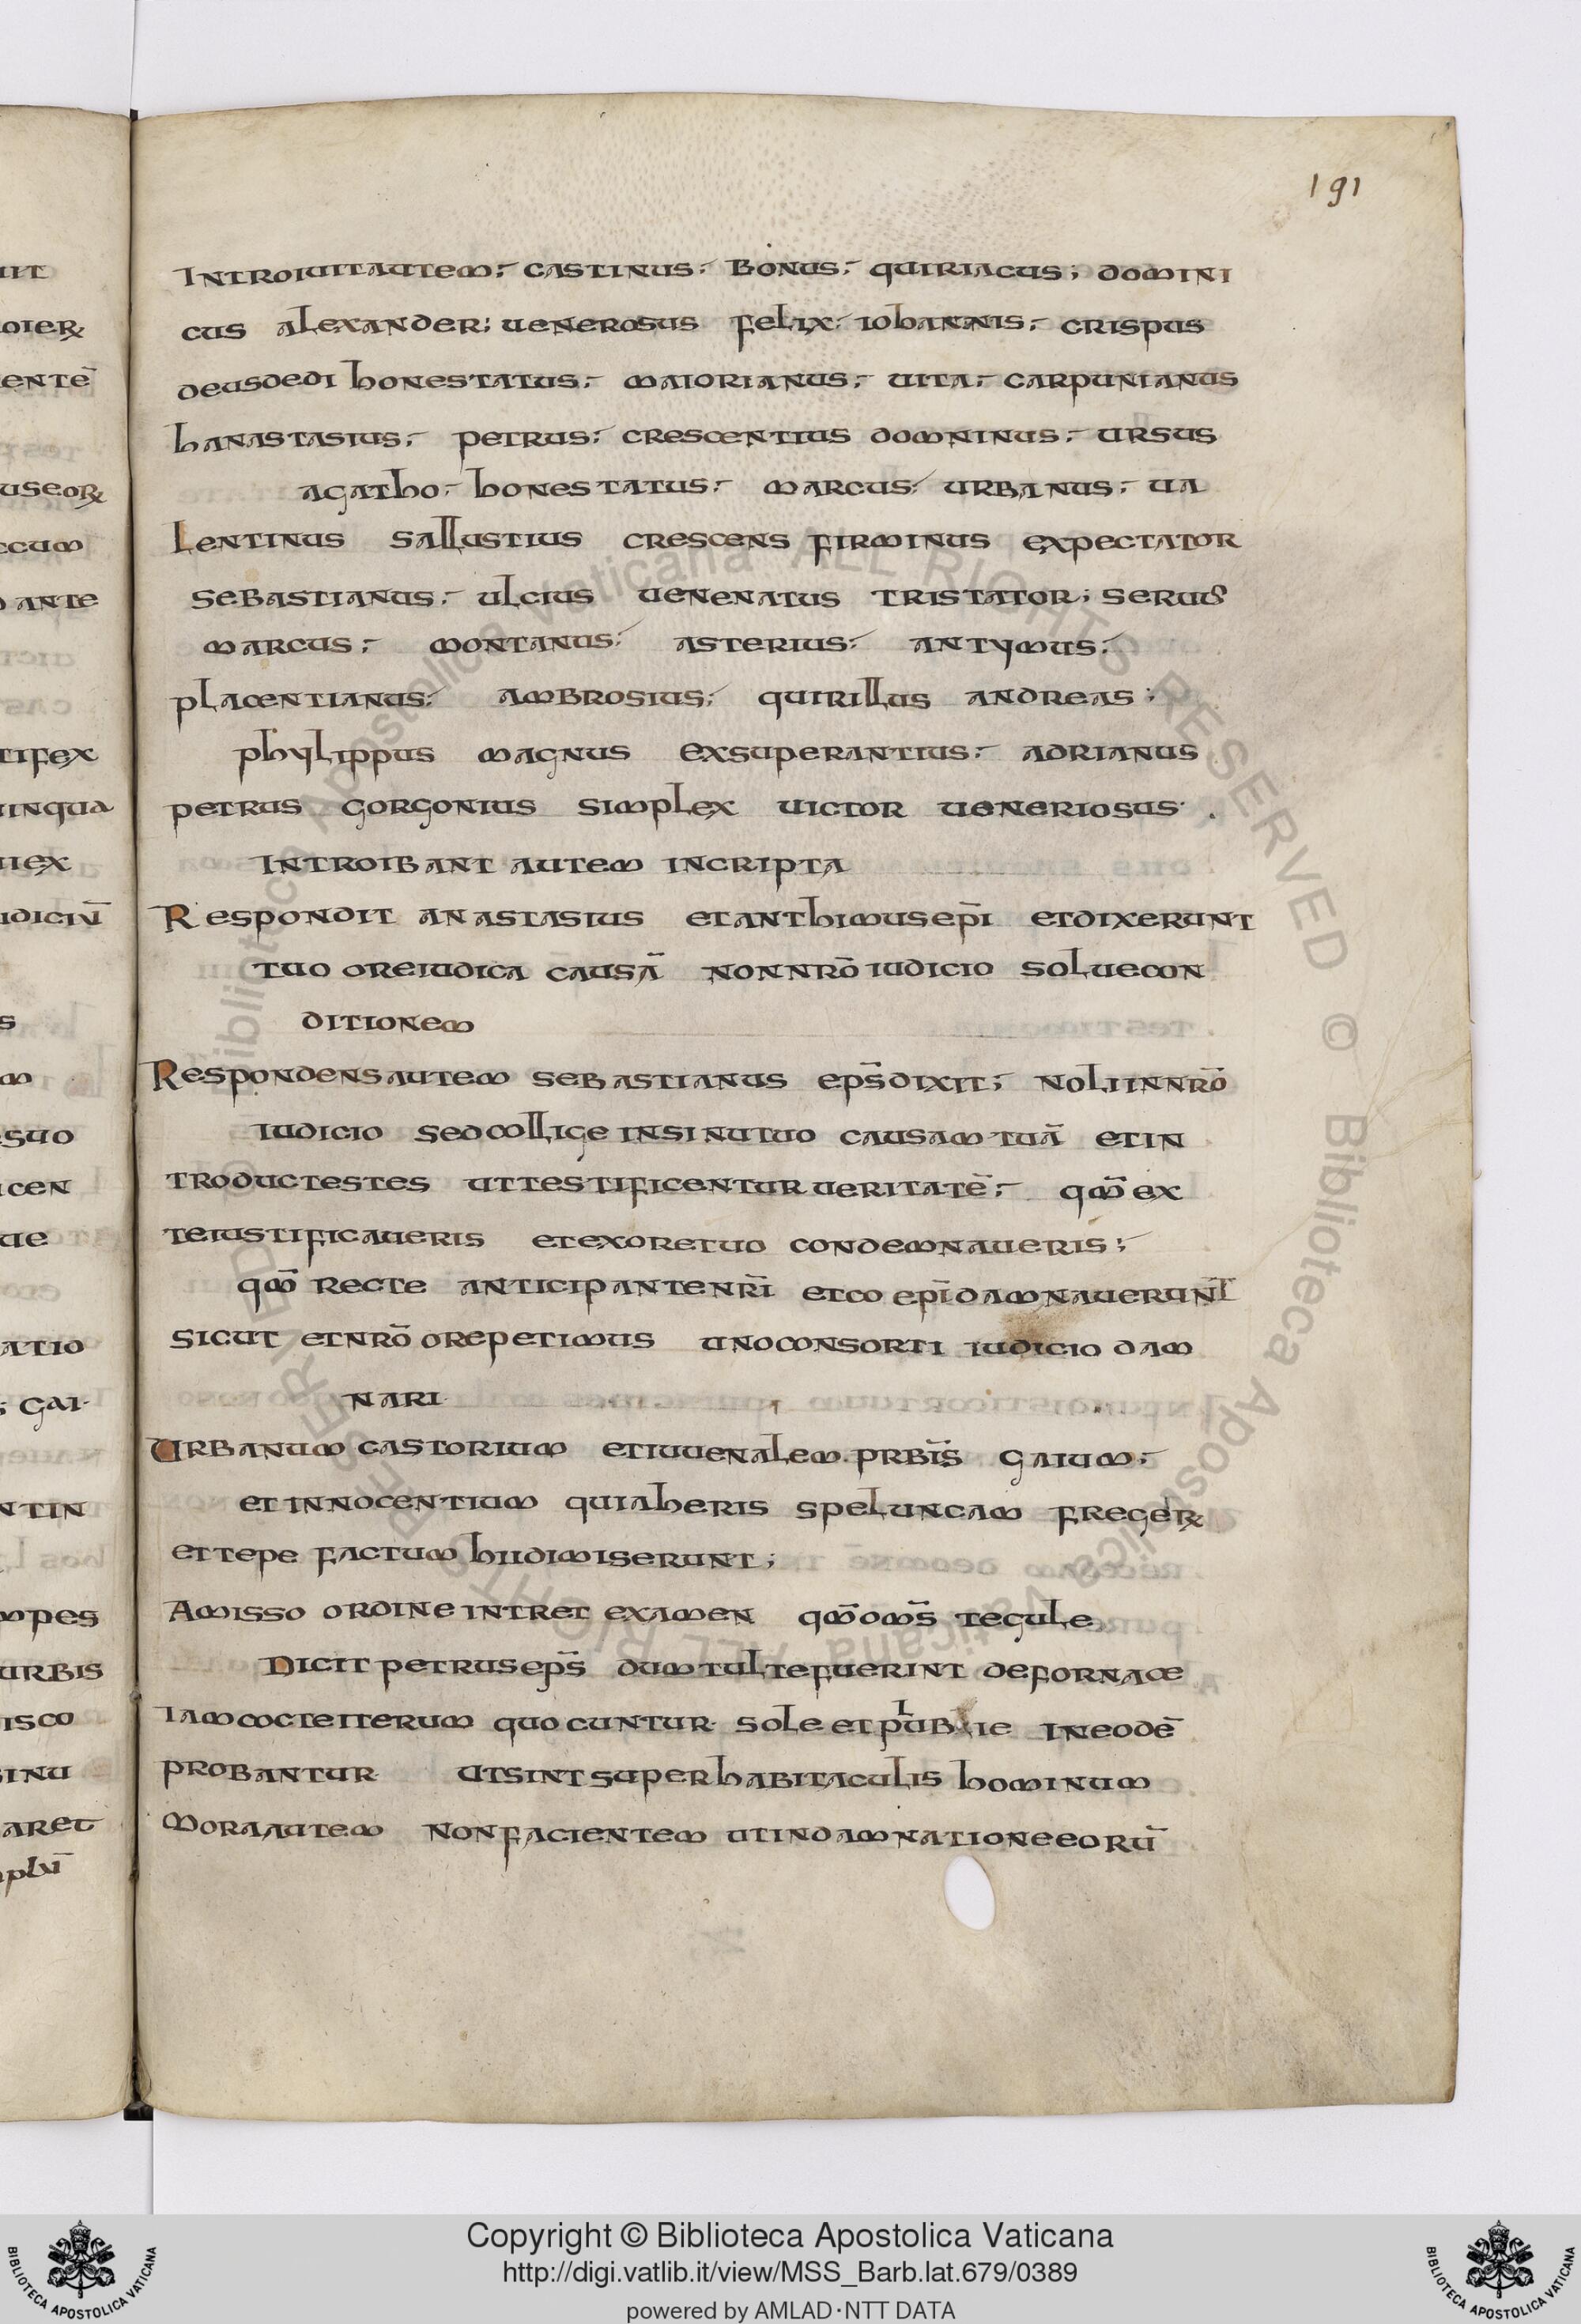 191
INTROIUITAUTEM; CASTINUS; BONUS; QUIRIACUS; DOMINI
CUS ALEXANDER; UENEROSUS FELIX; IOHANNIS; CRISPUS
DEUSDEDI HONESTATUS; MAIORIANUS; UITA; CARPUNIANUS
HANASTASIUS; PETRUS; CRESCENTIUS DOMNINUS; URSUS
AGATHO; HONESTATUS; MARCUS; URBANUS; UA
LENTINUS SALLUSTIUS CRESCENS FIRMINUS EXPECTATOR
SEBASTIANUS; ULCIUS UENENATUS TRISTATOR; SERUUS
MARCUS; MONTANUS; ASTERIUS; ANTYMUS;
PLACENTIANUS; AMBROSIUS; QUIRILLUS ANDREAS;
PHYLIPPUS MAGNUS EXSUPERANTIUS; ADRIANUS
PETRUS GORGONIUS SIMPLEX UICTOR UENERIOSUS.
INTROIBANT AUTEM INCRIPTA
RESPONDIT ANASTASIUS ETANTHIMUSEPĪ ETDIXERUNT
TUO OREIUDICA CAUSĀ NONNRŌ IUDICIO SOLUECON
DITIONEM
RESPONDENSAUTEM SEBASTIANUS EPS̄DIXIT; NOLIINNRŌ
IUDICIO SEDCOLLIGE INSINUTUO CAUSAMTUĀ ETIN
TRODUCTESTES UTTESTIFICENTURUERITATĒ; QM̄EX
TEIUSTIFICAUERIS ETEXORETUO CONDEMNAUERIS;
QM̄ RECTE ANTICIPANTENRĪ ETCO EPĪDAMNAUERUNT
SICUT ETNRŌ OREPETIMUS UNOCONSORTI IUDICIO DAM
NARI
URBANUM CASTORIUM ETIUUENALEM.PRBĪS GAIUM;
ETINNOCENTIUM QUIAHERIS SPELUNCAM FREGER
ETTEPE FACTUM HIIDIMISERUNT;
AMISSO ORDINE INTRET EXAMEN QM̄OMS̄ TEGULE
DICIT PETRUSEPS̄ DUMTULTEFUERINT DEFORNACE
IAMCOCTEITERUM QUOCUNTUR SOLE ET INEODĒ
PROBANTUR UTSINTSUPERHABITACULIS HOMINUM
MORAAUTEM NONFACIENTEM UTINDAMNATIONEEORŪ
Copyright © Biblioteca Apostolica Vaticana
http://digi.vatlib.it/view/MSS_Barb.lat.679/0389
powered by AMLAD·NTT DATA